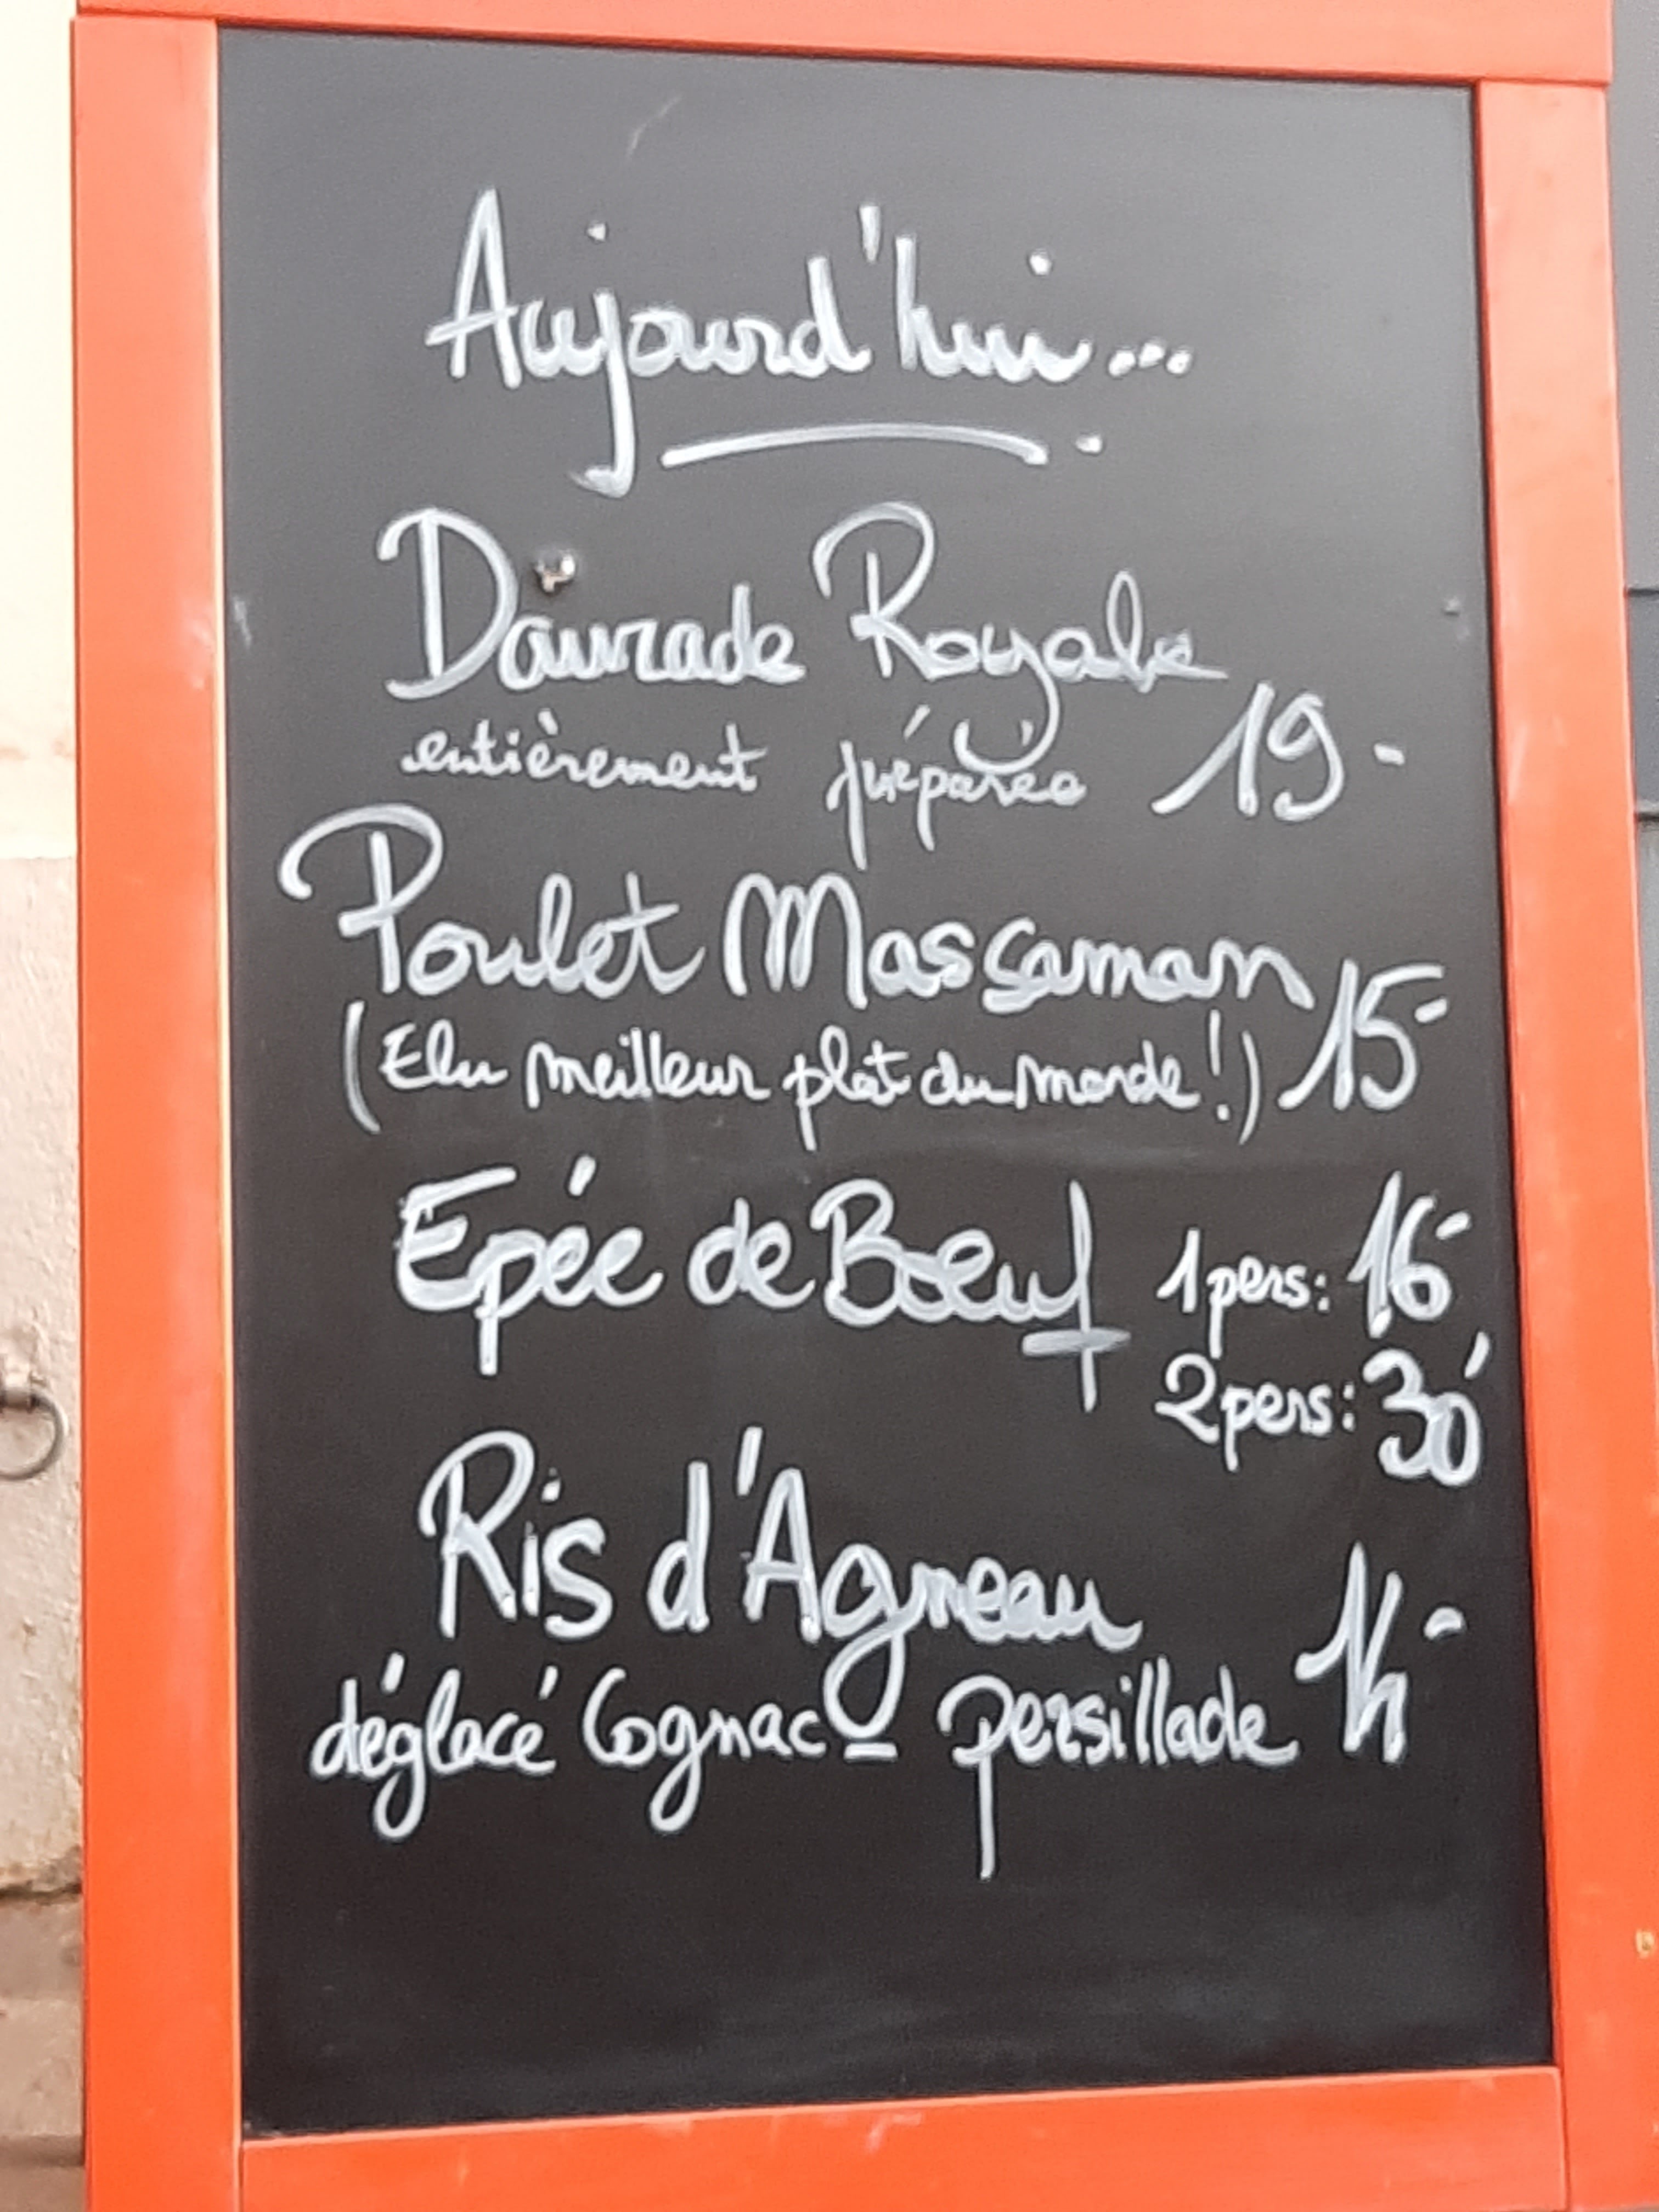 Aujourd'hui...
Daurade Royale
entièrement préparée 19-
Poulet Massaman
(Elu meilleur plat du monde!) 15-
Epée de Bœuf 1pers: 16-
2pers: 30-
Ris d'Agneau
déglacé Cognac - persillade 14-